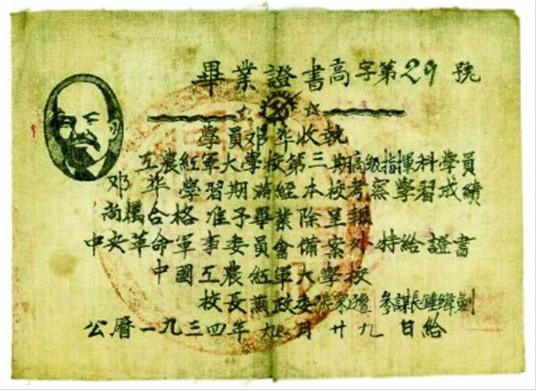 畢業證書高字第29號
學員鄧華收執
工農紅軍大學校第三期高級指揮科學員
鄧華學習期滿經本校考察學習成績
尚稱合格准予畢業除呈報
中央革命軍事委員會備案外特給證書
中國工農紅軍大學校
校長兼政委 參謀長鍾偉劍
公曆一九三四年九月廿九日給